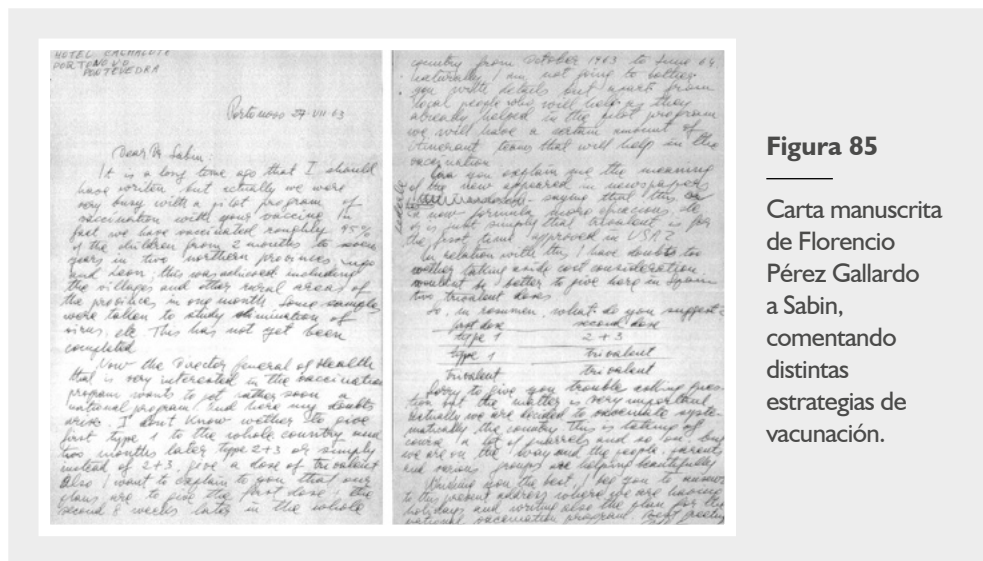 HOTEL CALMALOTE
PORTONOVO
PONTEVEDRA
Portonovo 27-VII-63
Dear Dr Sabin:
It is a long time ago that I should
have writen but actually we were
very busy with a pilot program of
vaccination with your vaccine. In
fact we have vaccinated roughly 95%
of the children from 2 months to seven
years in two northern provinces, Lugo
and Leon; this was achieved including
the villages and other rural areas of
the provinces in one month. Some samples
were taken to study elimination of
virus, etc. This has not yet been
completed
Now the Director General of Health
that is very interested in the vaccination
program wants to get rather soon a
national program. And here my doubts
arise. I don't know wether to give
first type 1 to the whole country and
two months later type 2+3 or simply
instead of 2+3, give a dose of trivalent
Also I want to explain to you that our
plans are to give the first dose; the
second 8 weeks later in the whole
country from October 1963 to June 64
naturally I am not going to bother
you with details but apart from
local people who will help as they
already helped in the pilot program
we will have a certain amount of
itinerant teams that will help in the
vaccination.
Can you explain me the meaning
of the new appeared in newspapers
saying that this or
a new formula more efficacious, etc
or is just simply that trivalent is for
the first time approved in USA?
In relation with this I have doubts too
wether taking aside cost consideration
wouldnt be better to give here in Spain
two trivalent doses
So, in resumen, what do you suggest:
first dose second dose
type 1 2+3
type 1 trivalent
trivalent trivalent
Sorry to give you trouble asking ques-
tion but the matter is very important
actually we are decided to vaccinate syste-
matically the country. This is taking of
course a lot of quarrels and so on, but
we are on the way and the people, parents
and various groups are helping beautifully
Wishing you the best, I beg you to answer
to this present address where we are having
holidays and writing also the plan for the
national vaccination program. Best greeting
Figura 85
Carta manuscrita
de Florencio
Pérez Gallardo
a Sabin,
comentando
distintas
estrategias de
vacunación.